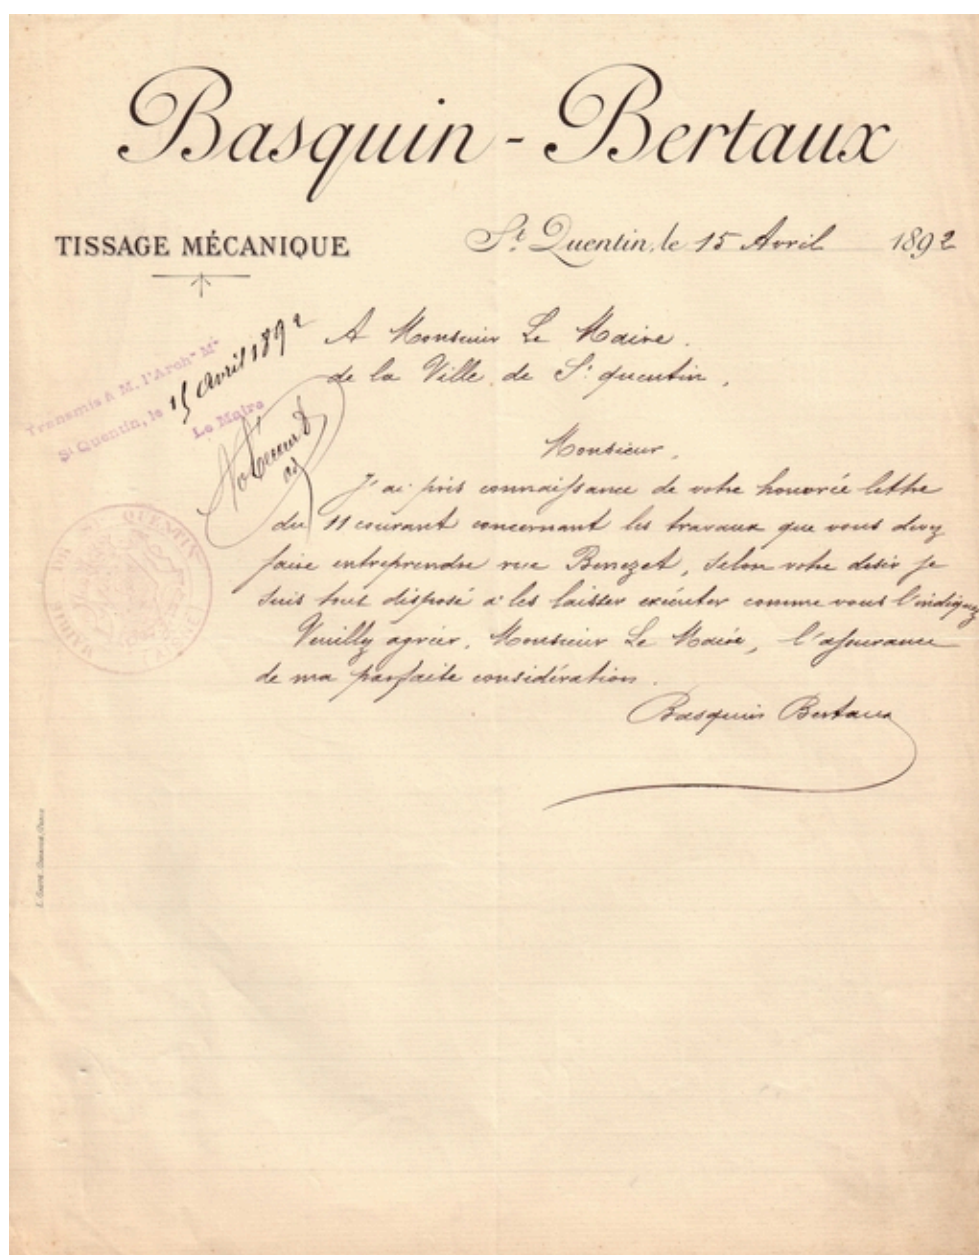 Basquin - Bertaux
TISSAGE MÉCANIQUE
St. Quentin, le 15 Avril 1892
Transmis à M. l'Archte Mal
St Quentin, le 15 avril 1892
Le Maire
A Monsieur Le Maire.
de la Ville de St quentin,
Monsieur,
J'ai pris connaissance de votre honorée lettre
du 11 courant concernant les travaux que vous devez
faire entreprendre rue Benezet, selon votre desir je
suis tout disposé à les laisser exécuter comme vous l'indiquez
Veuillez agréer, Monsieur Le Maire, l'assurance
de ma parfaite considération.
Basquin Bertaux
MAIRIE DE ST QUENTIN